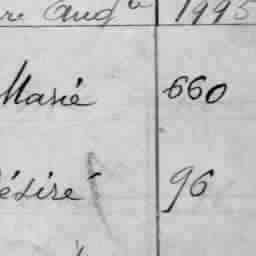 Aug 1995
Marié 660
Désiré 96